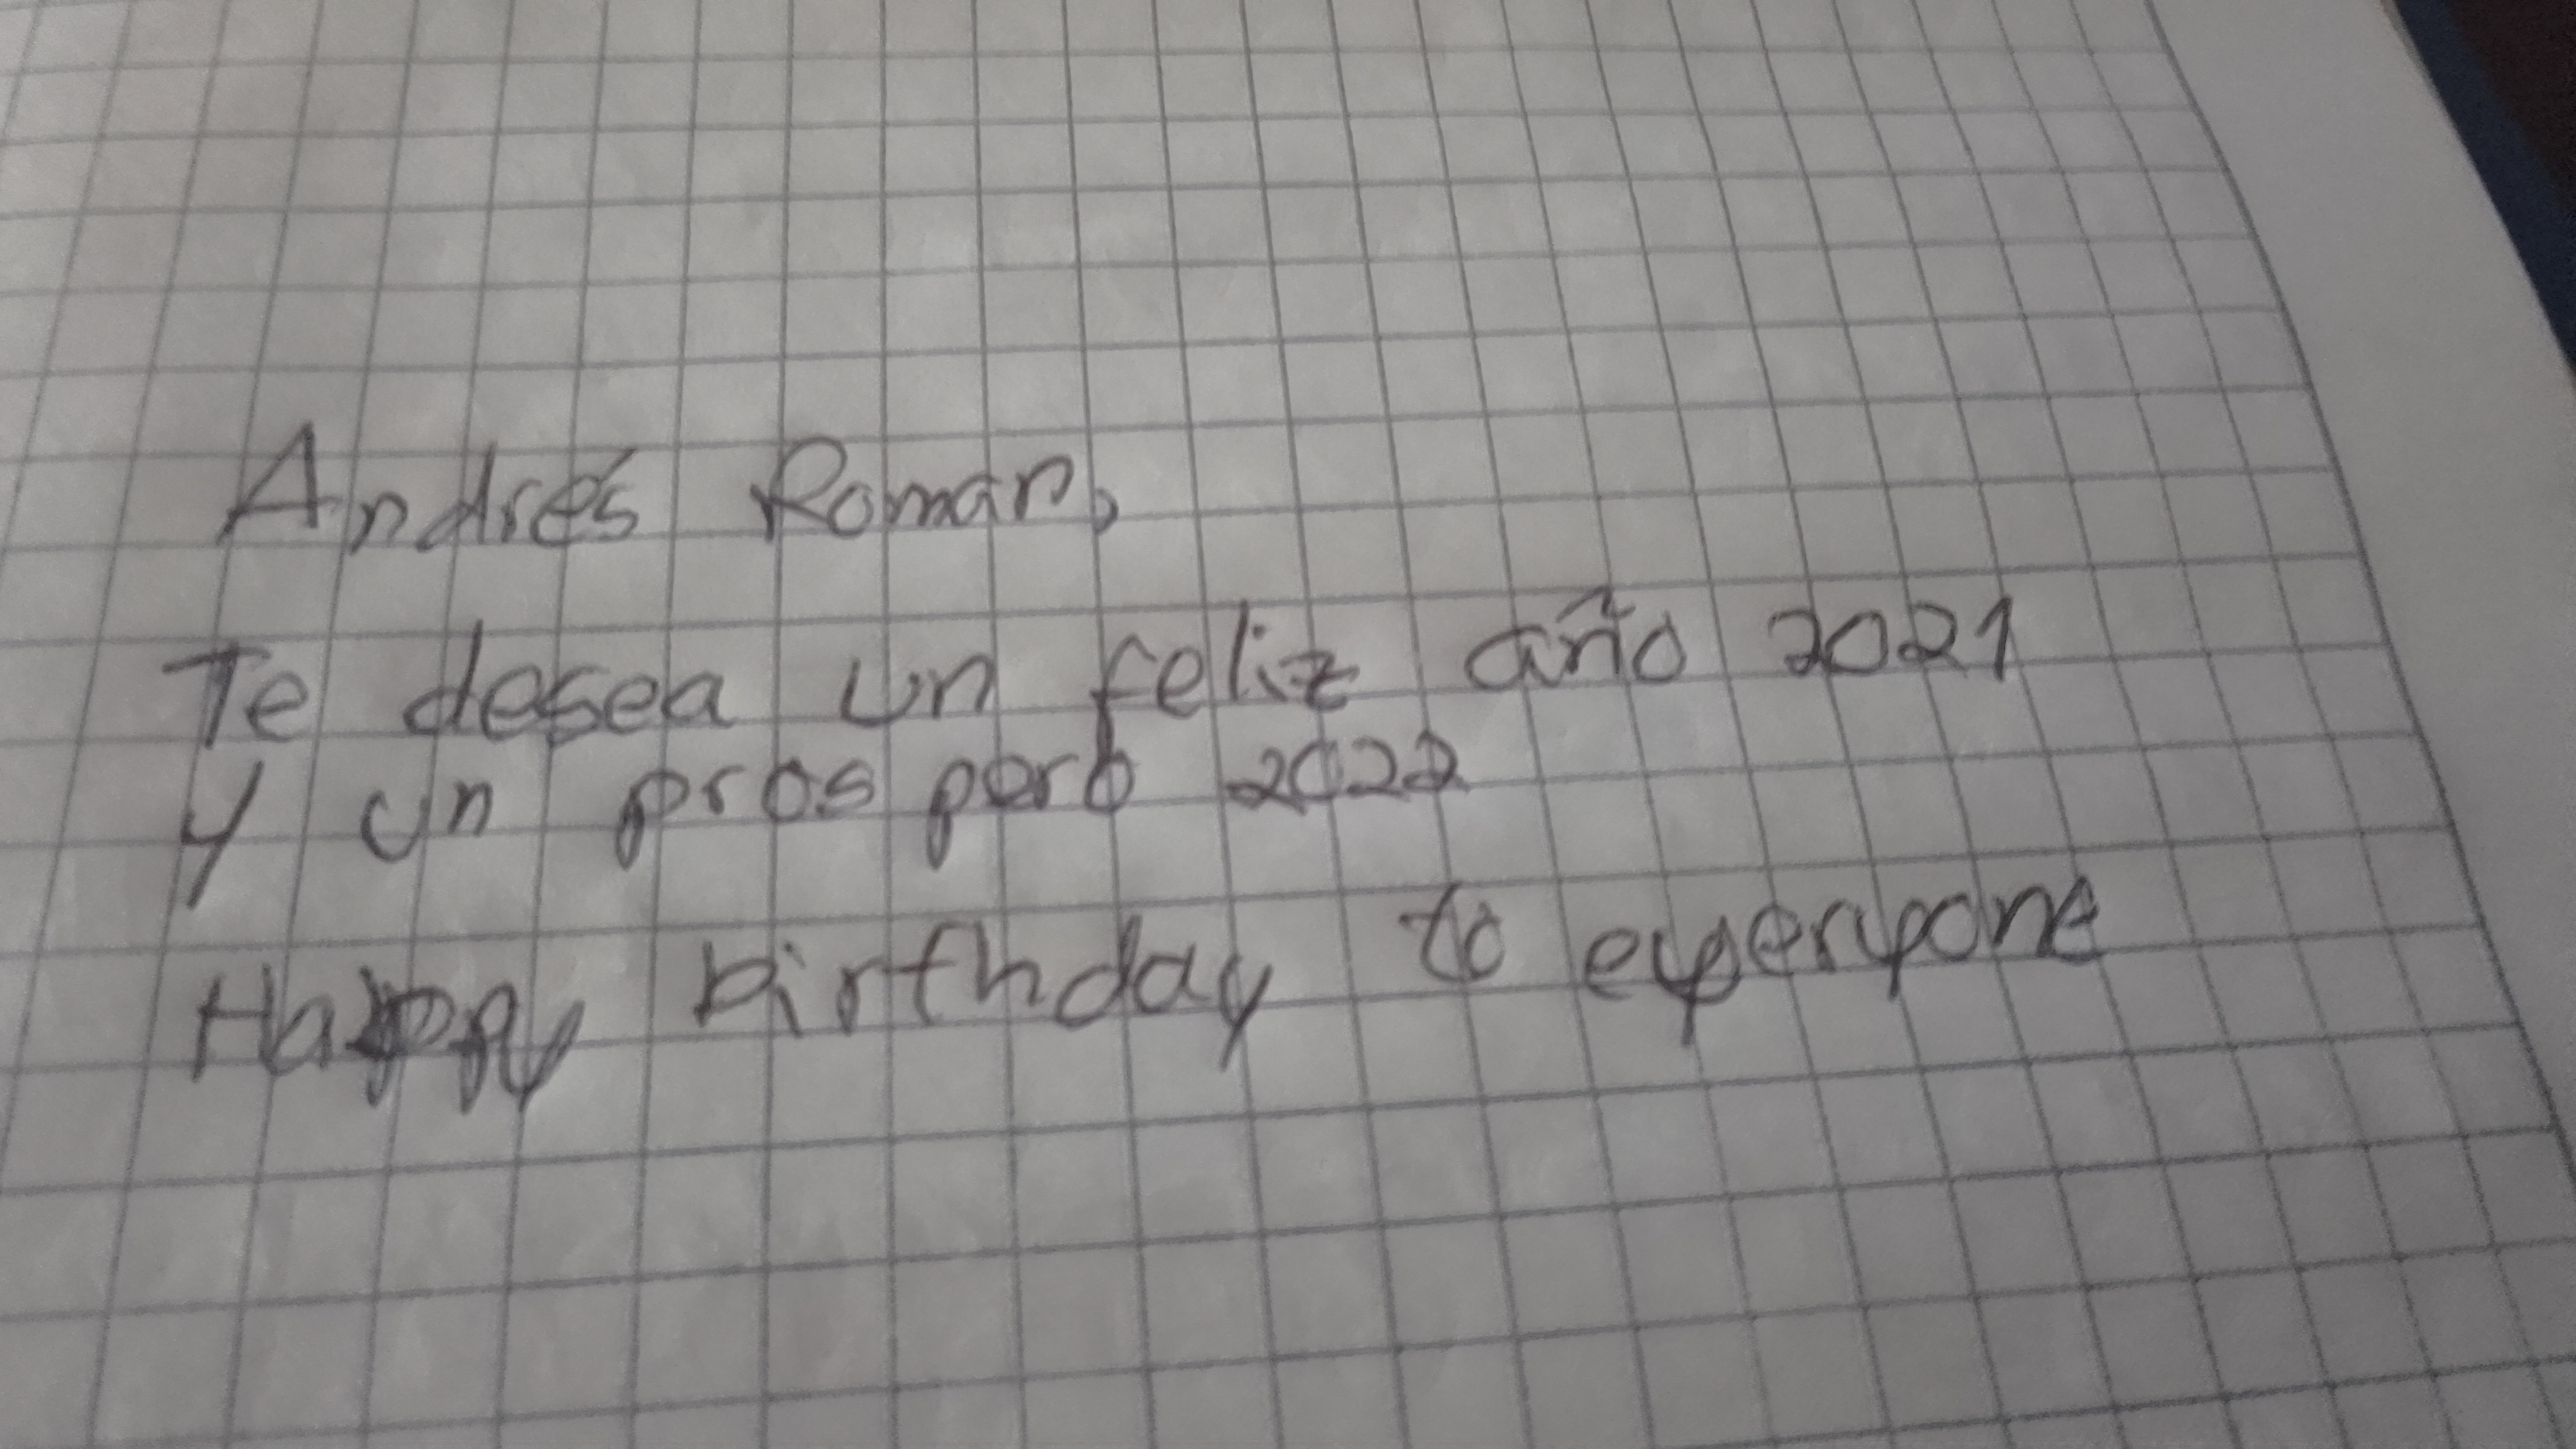 Andrés Roman,
Te desea un feliz año 2021
y un prospero 2022
Happy birthday to eyeryone